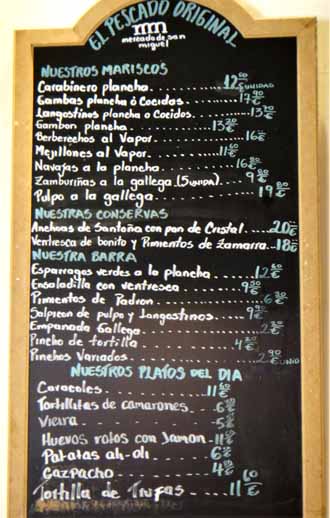 EL PESCADO ORIGINAL
mercado de san
miguel
NUESTROS MARISCOS
Carabinero plancha 12 UNIDAD
Gambas plancha ó Cocidas 17 90 €
Langostinos plancha o Cocidos 13
Gambon plancha 13
Berberechos al Vapor 16 €
Mejillones al Vapor 11
Navajas a la plancha 16
Zamburiñas a la gallega (5 UNIDA) 9
Pulpo a la gallega 19
NUESTRAS CONSERVAS
Anchoas de Santoña con pan de Cristal 20
Ventresca de bonito y Pimientos de Zamarra 18
NUESTRA BARRA
Esparragos verdes a la plancha 12
Ensaladilla con ventresca 9
Pimientos de Padron 6
Salpicon de pulpo y langostinos 9
Empanada Gallega 2
Pincho de tortilla 4
Pinchos Variados 2 90 € UNID
NUESTROS PLATOS DEL DIA
Caracoles 11
Tortillitas de camarones 6
Vieira 5
Huevos rotos con Jamon 11
Patatas ali-oli 6
Gazpacho 4
Tortilla de Trufas 11 60 €